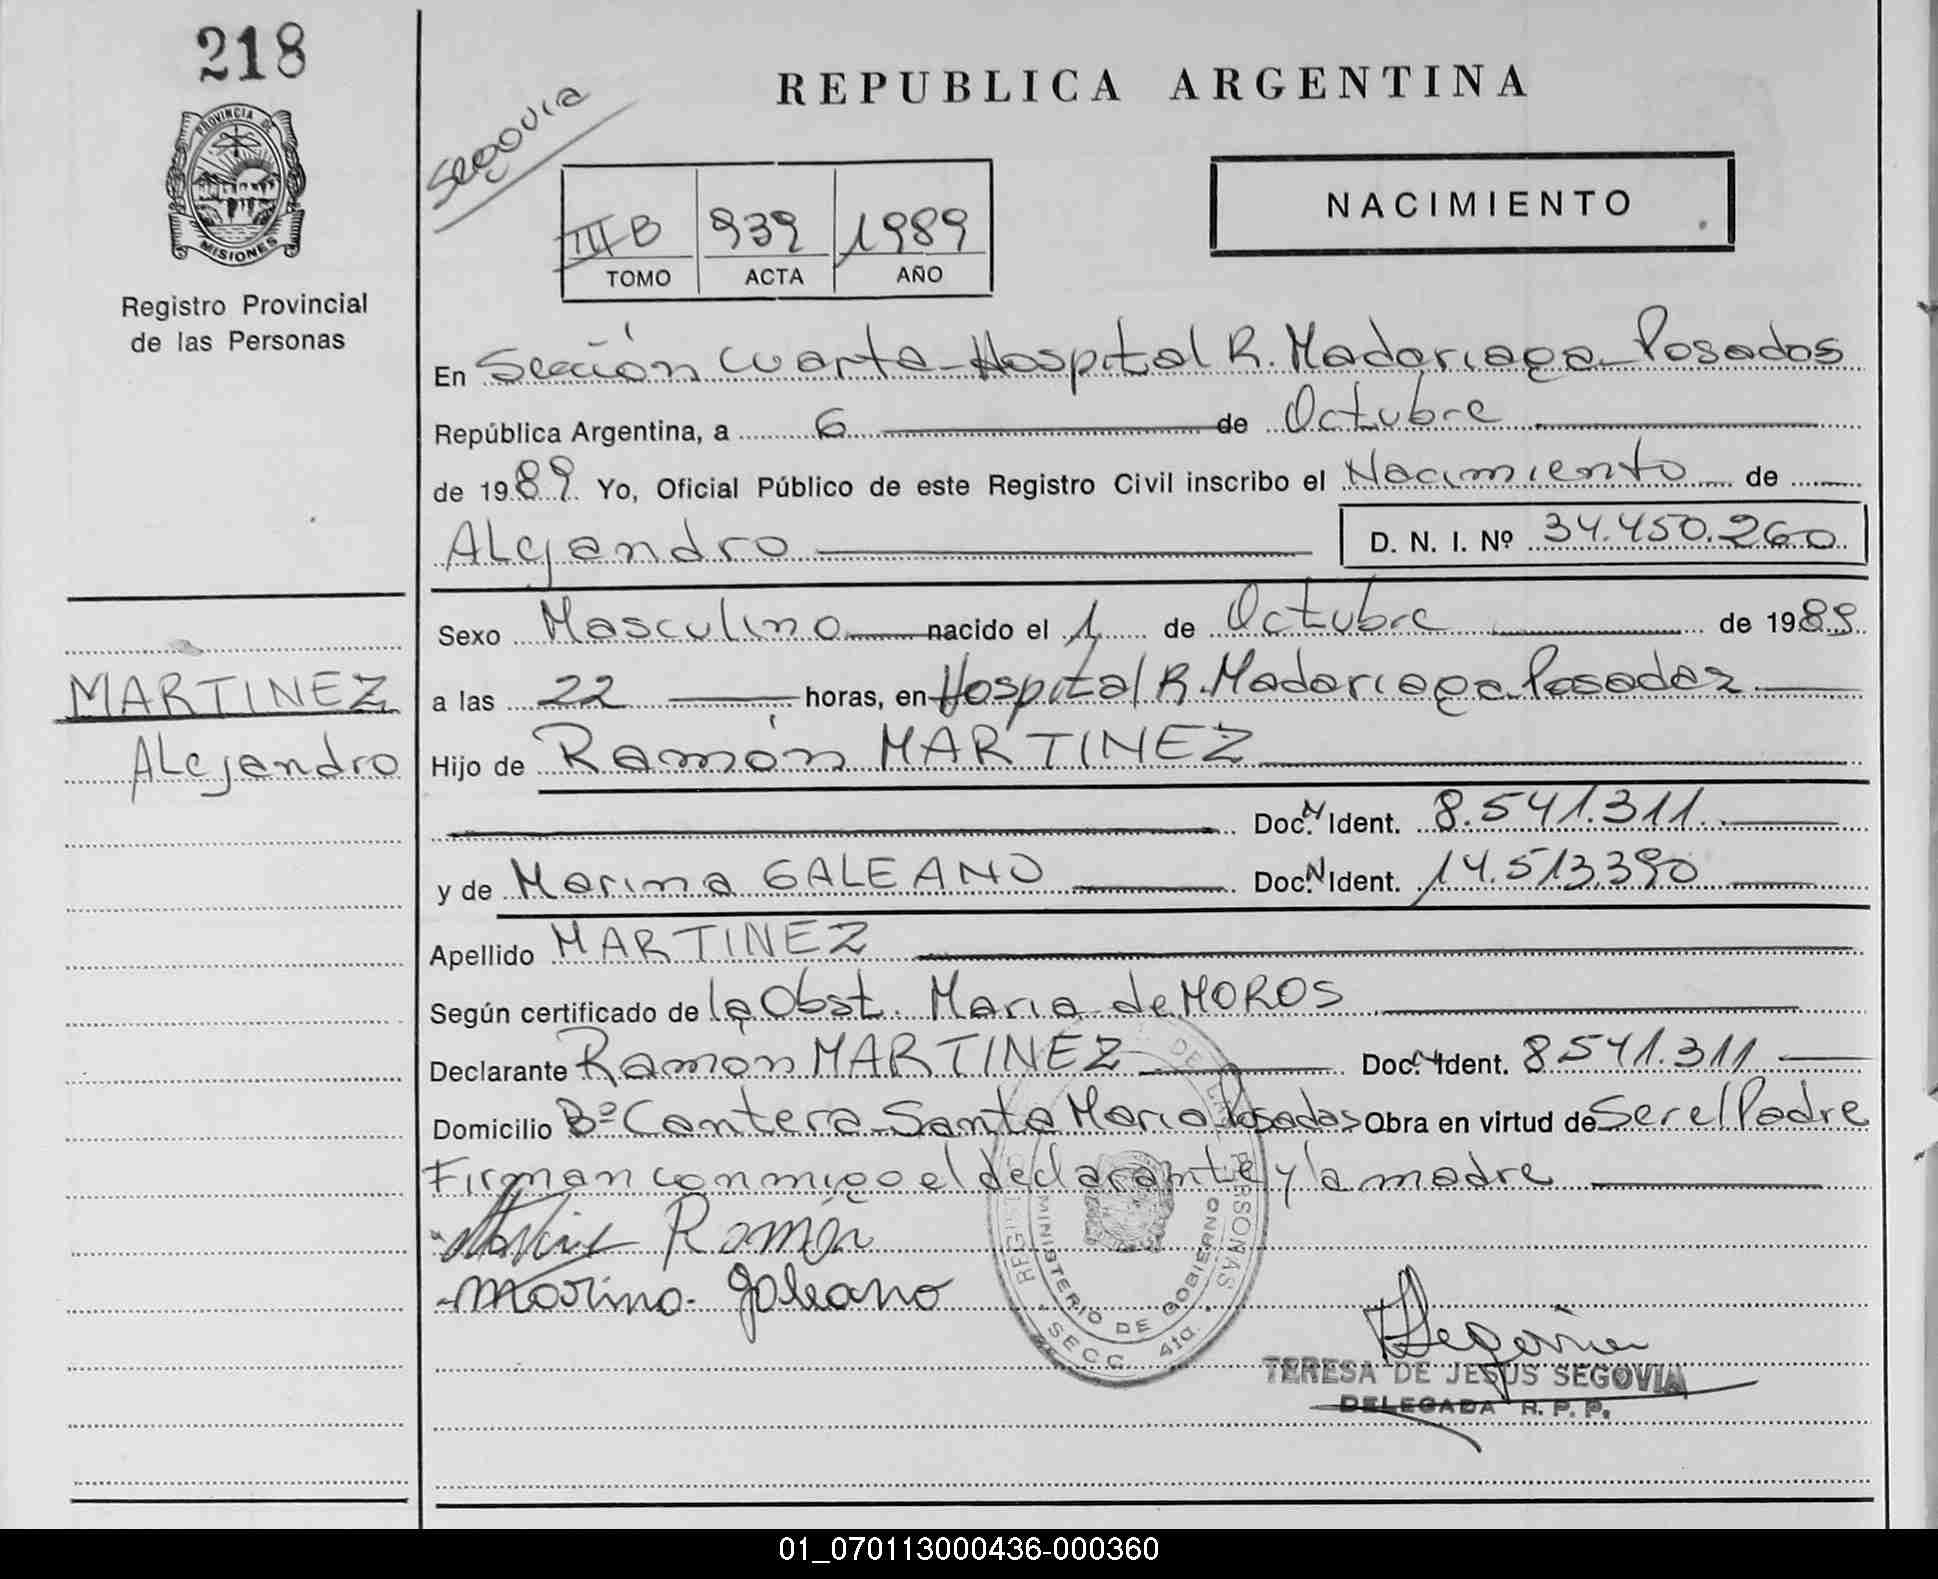 218
PROVINCIA DE
MISIONES
Registro Provincial
de las Personas
Segovia
REPUBLICA ARGENTINA
NACIMIENTO
III B 939 1989
TOMO ACTA AÑO
En Sección Cuarta - Hospital R. Madariaga - Posadas
República Argentina, a 6 de Octubre
de 1989. Yo, Oficial Público de este Registro Civil inscribo el Nacimiento de
Alejandro D. N. I. Nº 34.450.260
Sexo Masculino nacido el 1 de Octubre de 1989
a las 22 horas, en Hospital R. Madariaga Posadas
MARTINEZ
Alejandro
Hijo de Ramón MARTINEZ
Doc. N Ident. 8.541.311
y de Marina GALEANO Doc. N Ident. 14.513.390
Apellido MARTINEZ
Según certificado de la Obst. Maria de MOROS
Declarante Ramón MARTINEZ Doc. N Ident. 8541.311
Domicilio Bº Cantera Santa Maria Posadas Obra en virtud de Ser el Padre
Firman conmigo el declarante y la madre
Ramón
Marina Galeano
DE LAS PERSONAS
MINISTERIO DE GOBIERNO
SECC. 4ta.
Segovia
TERESA DE JESUS SEGOVIA
DELEGADA R. P. P.
01_070113000436-000360